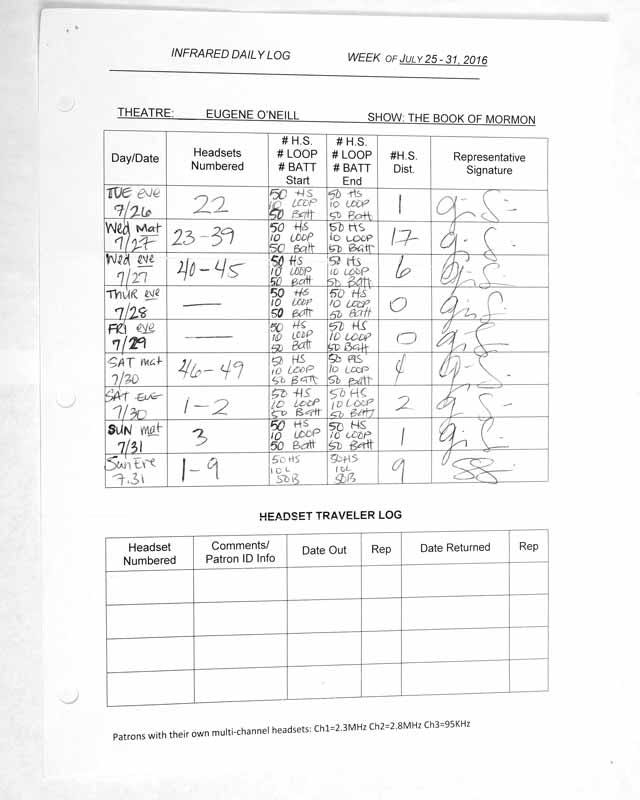 INFRARED DAILY LOG WEEK OF JULY 25 - 31, 2016
THEATRE: EUGENE O'NEILL SHOW: THE BOOK OF MORMON
Day/Date
Headsets
Numbered
# H.S.
# LOOP
# BATT
Start
# H.S.
# LOOP
# BATT
End
#H.S.
Dist.
Representative
Signature
TUE eve
7/26
22
50 HS
10 LOOP
50 Batt
50 HS
10 LOOP
50 Batt
1
Wed Mat
7/27
23-39
50 HS
10 LOOP
50 Batt
50 HS
10 LOOP
50 Batt
17
Wed eve
7/27
40-45
50 HS
10 LOOP
50 Batt
50 HS
10 LOOP
50 Batt
6
THUR eve
7/28
—
50 HS
10 LOOP
50 Batt
50 HS
10 LOOP
50 Batt
0
FRI eve
7/29
—
50 HS
10 LOOP
50 Batt
50 HS
10 LOOP
50 Batt
0
SAT mat
7/30
46-49
50 HS
10 LOOP
50 BATT
50 HS
10 LOOP
50 BATT
4
SAT EVE
7/30
1-2
50 HS
10 LOOP
50 Batt
50 HS
10 LOOP
50 Batt
2
SUN mat
7/31
3
50 HS
10 LOOP
50 Batt
50 HS
10 LOOP
50 Batt
1
Sun Eve
7.31
1-9
50HS
10L
50B
50HS
10L
50B
9
HEADSET TRAVELER LOG
Headset
Numbered
Comments/
Patron ID Info
Date Out
Rep
Date Returned
Rep
Patrons with their own multi-channel headsets: Ch1=2.3MHz Ch2=2.8MHz Ch3=95KHz